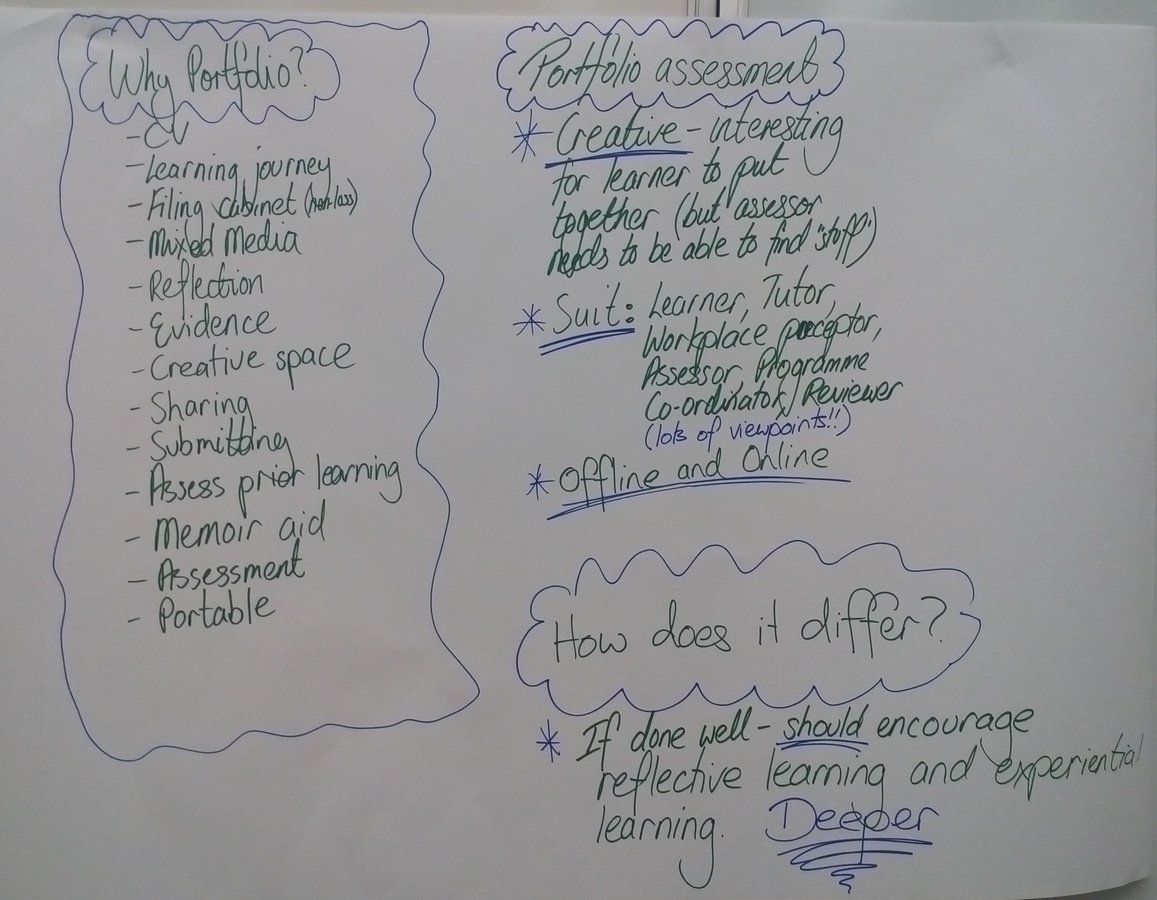 Why Portfolio?
- CV
- Learning journey
- Filing cabinet (non-loss)
- Mixed Media
- Reflection
- Evidence
- Creative space
- Sharing
- Submitting
- Assess prior learning
- Memoir aid
- Assessment
- Portable
Portfolio assessment
* Creative - interesting
for learner to put
together (but assessor
needs to be able to find "stuff")
* Suit: Learner, Tutor,
Workplace preceptor,
Assessor, Programme
Co-ordinator, Reviewer
(lots of viewpoints!!)
* Offline and Online
How does it differ?
* If done well - should encourage
reflective learning and experiential
learning. Deeper